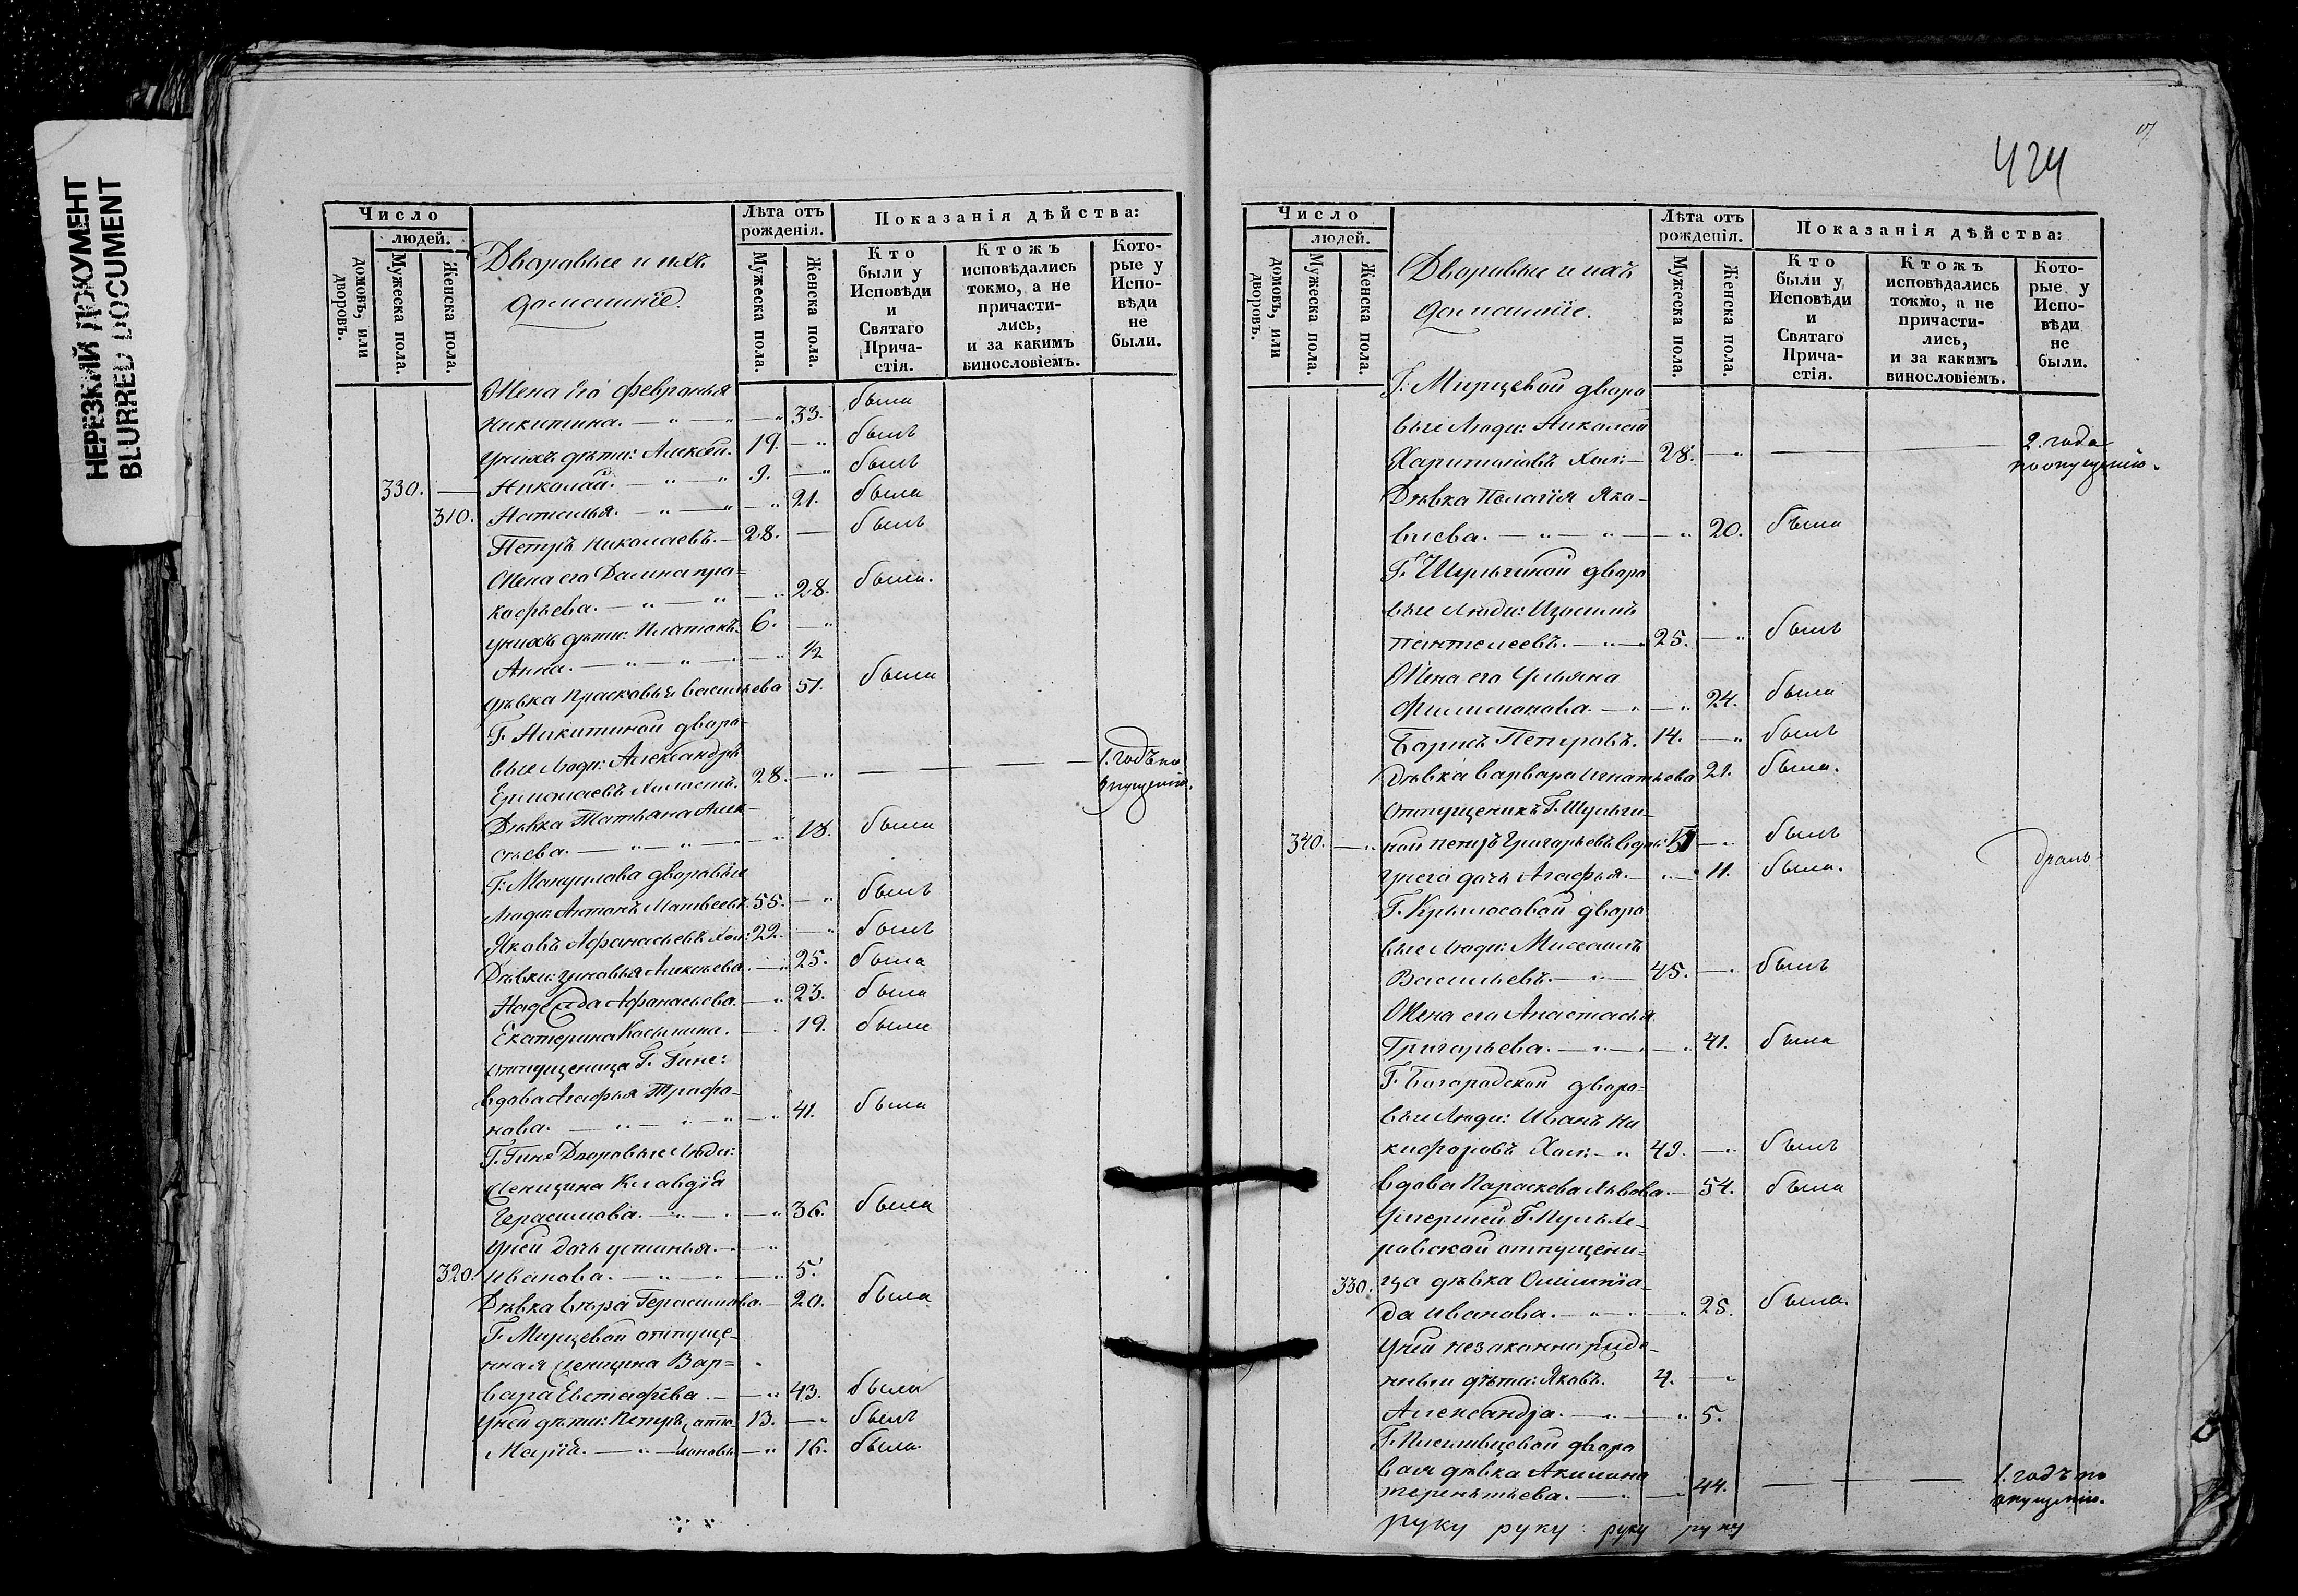 НЕРЕЗКИЙ ДОКУМЕНТ
BLURRED DOCUMENT
Число
людей.
домовъ, или дворовъ.
Мужеска пола.
Женска пола.
Дворовые и ихъ
домашніе.
Лѣта отъ рожденія.
Мужеска пола.
Женска пола.
Показанія дѣйства:
Кто были у Исповѣди и Святаго Прича-стія.
Ктожъ исповѣдались токмо, а не причасти-лись, и за какимъ винословіемъ.
Кото-рые у Испо-вѣди не были.
Жена его Февронья
Никитина. — „ — — „ 33. была
У нихъ дѣти: Алексѣй. 19. — „ былъ
330. — Николай. — „ — „ 9. — „ былъ
310. Наталья. — „ — „ — „ 21. была
Петръ Николаевъ. — 28. — былъ
Жена его Домна Про=
кофьева. — „ — „ — „ 28. была.
У нихъ дѣти: Платонъ. 6. — „
Анна. — „ — „ — „ 1/2
Дѣвка Прасковья Васильева 51. была
Г. Никитиной дворо-
вые Люди: Александръ
Ермолаевъ Холостъ. 28. — „ — — — 1. годъ по
опущенію.
Дѣвка Татьяна Алек-
сѣева. — „ — „ — „ 18. была
Г. Мануилова дворовые
Люди: Антонъ Матвеевъ. 55. — „ былъ
Яковъ Афанасьевъ Хол: 22. — „ былъ
Дѣвки: Зиновья — „ 25. была
Надежда Афанасьева. — „ 23. была
Екатерина Косьмина. — „ 19. была
Отпущеница Г. Гине:
вдова Агафья Трифо-
нова. — „ — „ — „ 41. была
Г. Гине Дворовые Люди:
Женщина Клавдія
Герасимова. — „ — „ 36. была
У ней дочь Устинья. — „
320. Иванова. — „ — „ 5.
Дѣвка Вѣра Герасимова. — 20. была
Г. Мирцевой отпуще-
нная женщина Вар=
вара Евстафіева. — — „ 43. была
У ней дѣти: Петръ 13. — „ былъ
Марія. — „ — „ 16. была.
424
Число
людей.
домовъ, или дворовъ.
Мужеска пола.
Женска пола.
Дворовые и ихъ
домашніе.
Лѣта отъ рожденія.
Мужеска пола.
Женска пола.
Показанія дѣйства:
Кто были у Исповѣди и Святаго Прича-стія.
Ктожъ исповѣдались токмо, а не причасти-лись, и за какимъ винословіемъ.
Кото-рые у Испо-вѣди не были.
Г. Мирцевой дворо
вые Люди: Николай
Харитоновъ Хол: — 28. — „ — — 2. года
по опущенію.
Дѣвка Пелагія Яко-
влева. — „ — „ — „ 20. была
Г. Шульгиной дворо
вые Люди: Изосимъ
Пантелеевъ. — „ — 25. — „ былъ
Жена его Ульяна
Филимонова. — „ — „ 24. была
Борисъ Петровъ. 14. — „ былъ
Дѣвка Варвара Игнатьева 21. была.
Отпущеникъ Г. Шульги-
340. — „ ной Петръ Григорьевъ вдов: 51 — „ былъ
У него дочь Агафья. — „ — 11. была.
Г. Крылосовой дворо
вые Люди: Михаилъ
Васильевъ. — „ — 45. — „ былъ
Жена его Анастасья
Григорьева. — „ — „ 41. была
Г. Богородской дворо-
вые Люди: Иванъ Ни
кифоровъ Хол: — „ 49. — „ былъ
Вдова Параскева Львова. — 54. была
Умершей Г. Пульхе-
ровской отпущени=
330. ца дѣвка Олимпіа-
да Иванова. — „ — „ 25. была.
У ней незаконнорожде-
нныи дѣти: Яковъ. 4. — „
Александра. — „ — „ 5.
Г. дворо
вая дѣвка Акилина
Терентьева. — „ — „ 44. — — 1. годъ по
опущенію.
руку руку руку руку